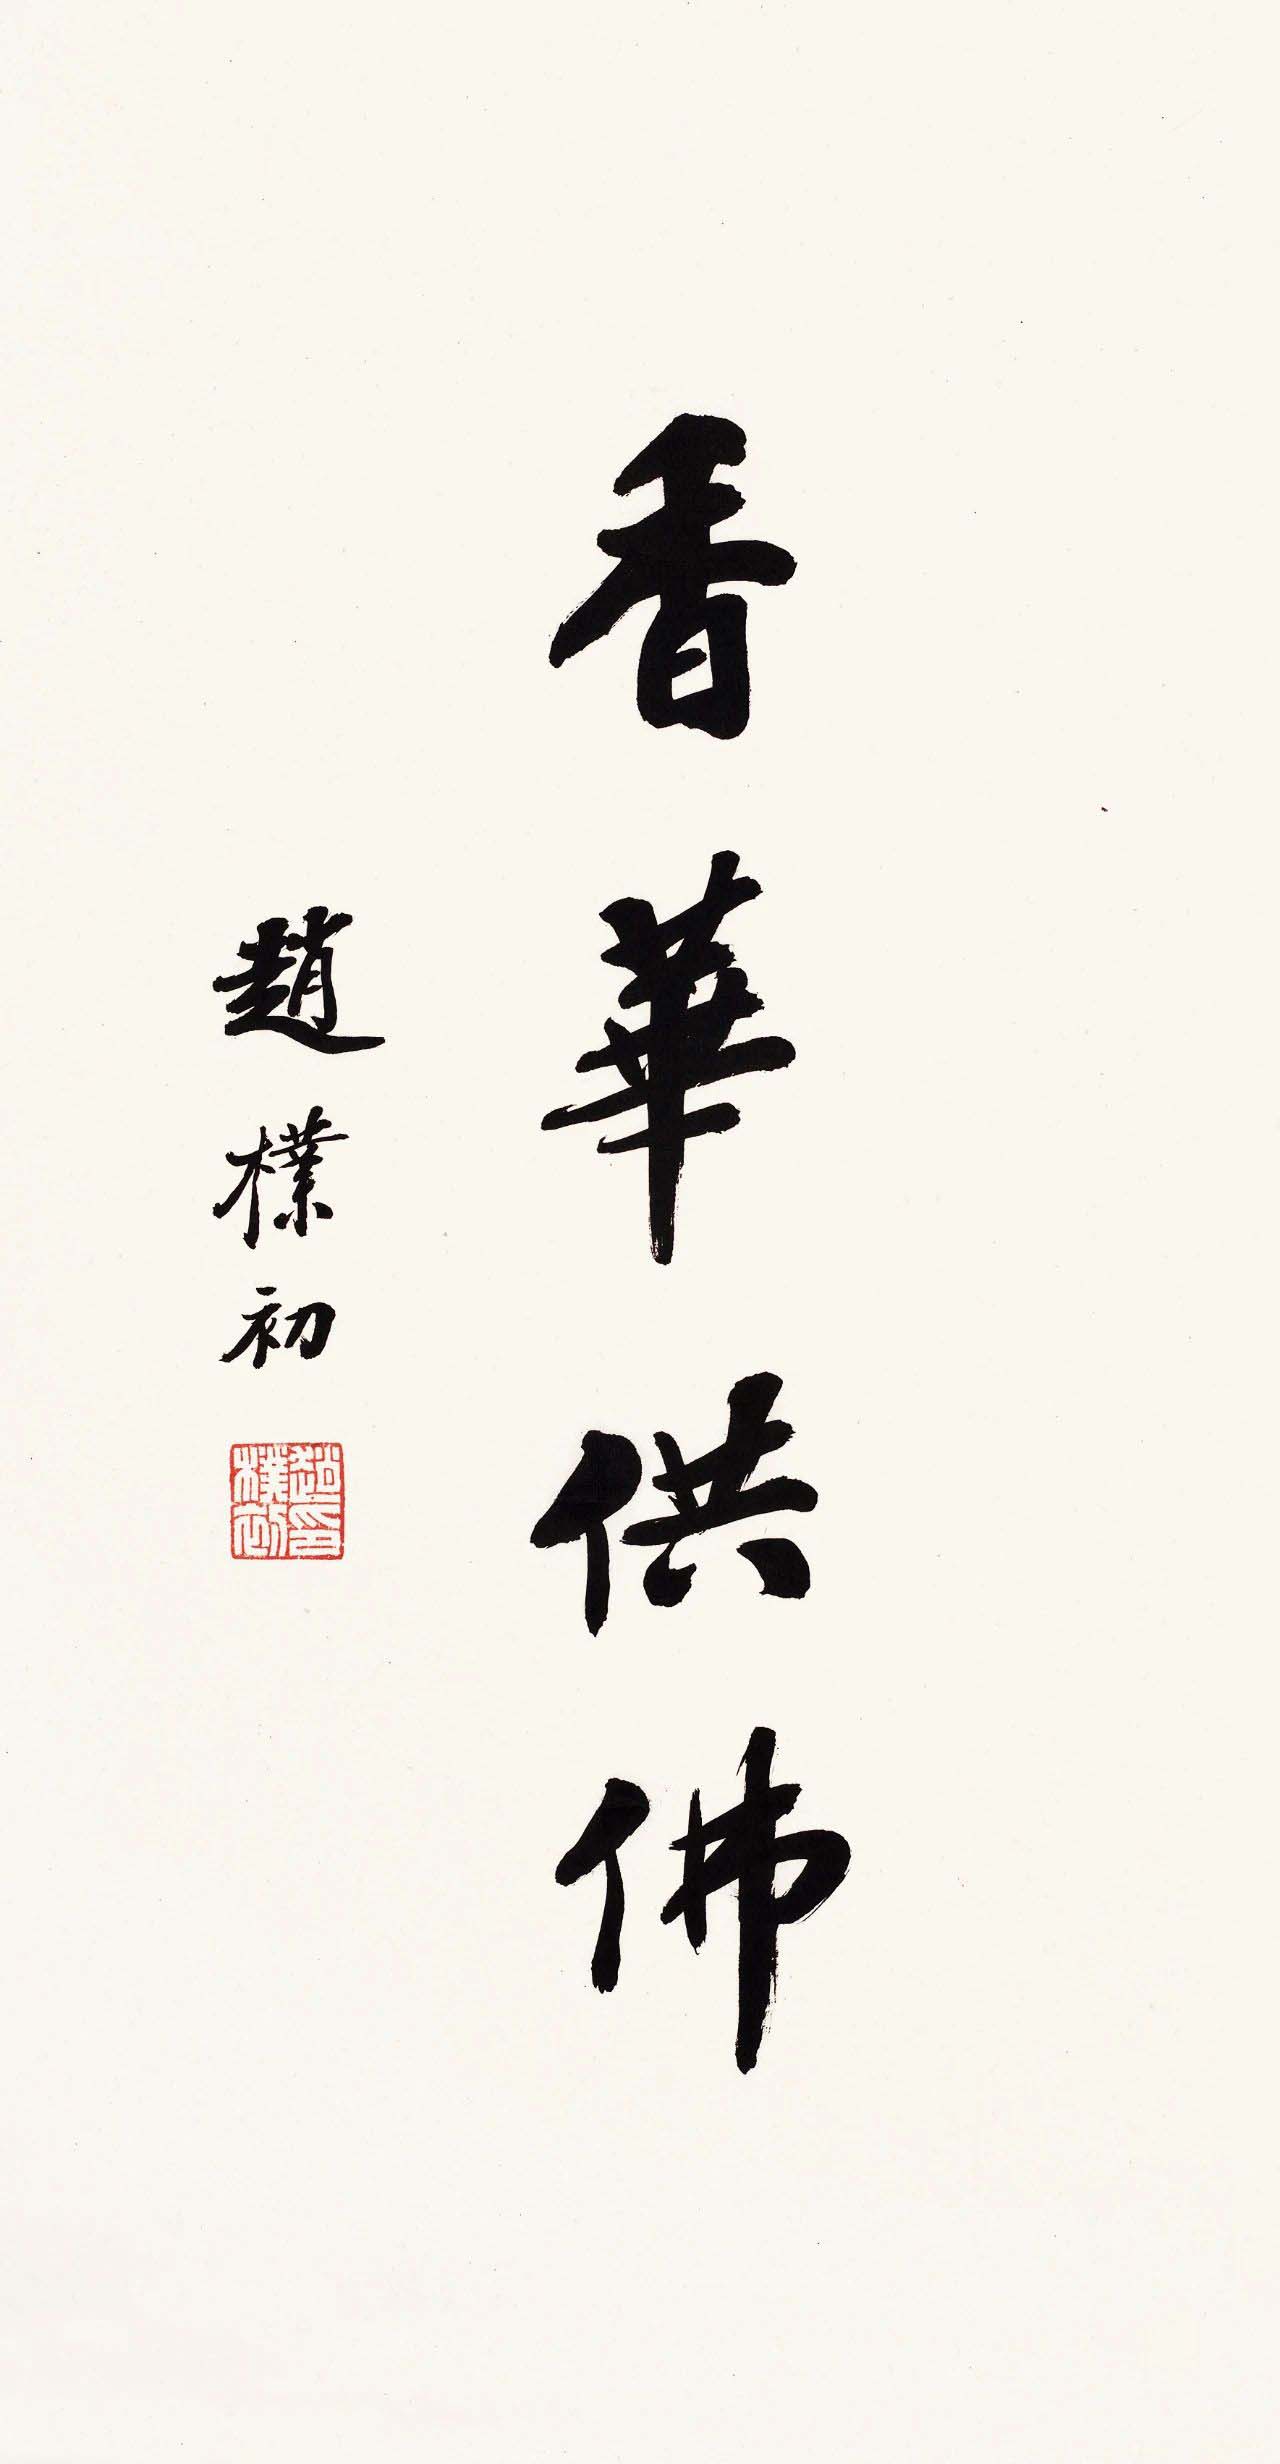 香華供佛
趙樸初
趙樸初印